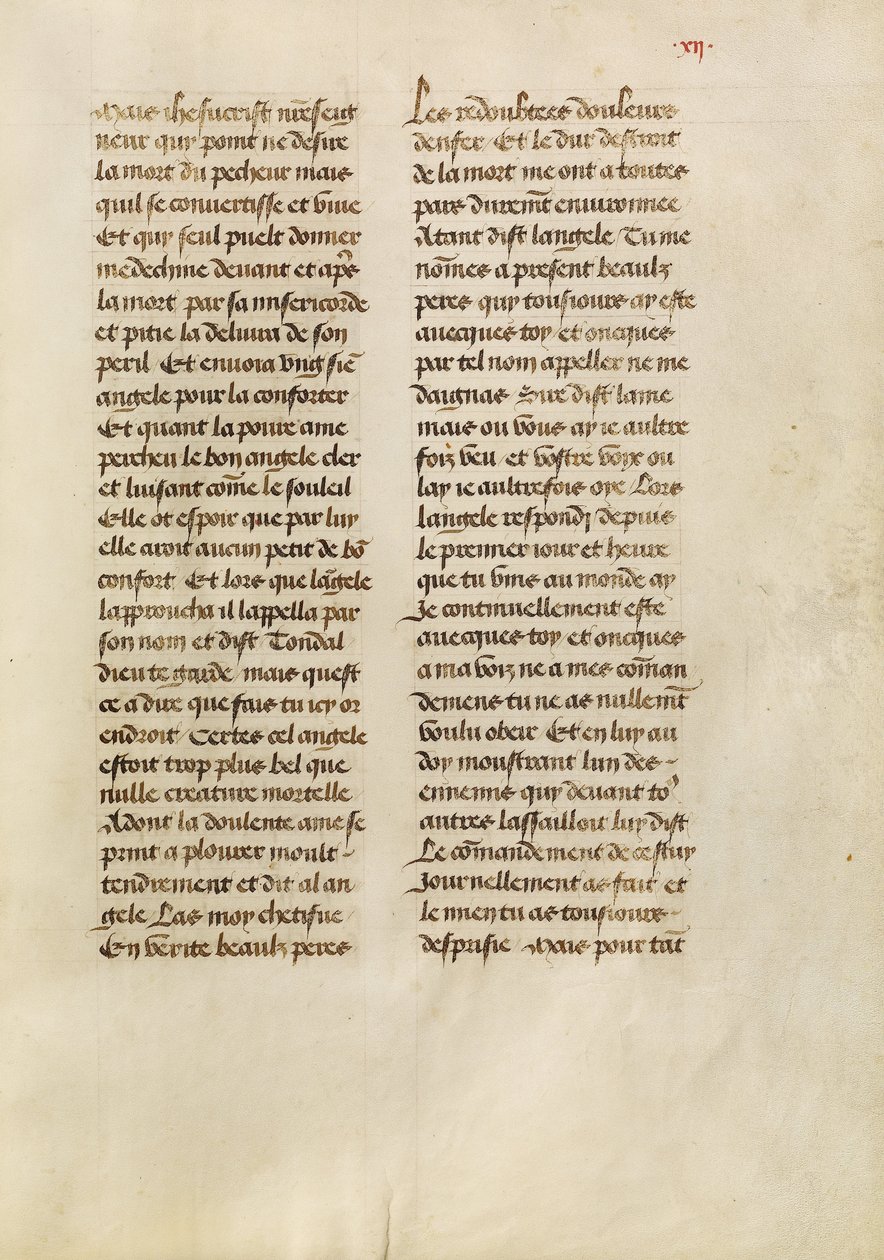 ·xij·
Mais ihesucrist nr̄e seig
neur quy point ne desire
la mort du pecheur mais
quil se conuertisse et viue
Et quy seul puelt donner
medechine deuant et apr̄s
la mort par sa misericorde
et pitie la deliura de son
peril Et enuoia vng siē
angele pour la conforter
Et quant la poure ame
percheu le bon angele cler
et luisant com̄e le souleil
Elle ot espoir que par luy
elle aroit aucun petit de bō
confort Et lors que lāgele
lapproucha il lappella par
son nom et dist Tondal
dieu te garde mais quest
ce a dire que fais tu icy or
endroit Certes cel angele
estoit trop plus bel que
nulle creature mortelle
Adont la doulente ame se
print a plourer moult -
tendrement et dit al an
gele Las moy chetifue
En verite beaulz peres
Les redoubtees douleurs
denfer Et le dur destroit
de la mort me ont a toutes
pars duremt̄ enuironnee
Atant dist langele Tu me
nom̄es a present beaulz
peres quy tousiours ay este
auecques toy et oncques
par tel nom appeller ne me
daignas Sire dist lame
mais ou vous ay ie aultre
foiz veu et vostre voix ou
lay ie aultrefois oye Lors
langele respondj depuis
le premier iour et heure
que tu vins au monde ay
Je continuellement este
auecques toy et oncques
a ma voiz ne a mes com̄an
demens tu ne as nullemt̄
voulu obeir Et en luy au
doy moustrant lun des -
ennemis quy deuant to9
autres lassailloit luy dist
Le com̄andement de cestuy
Journellement as fait et
le mien tu as tousiours -
desprisie Mais pour tāt